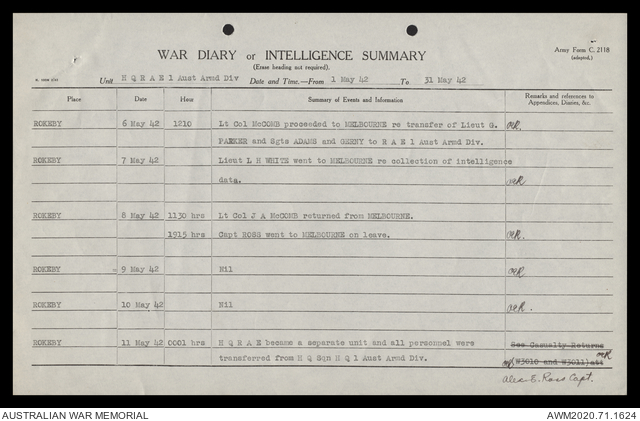 Army Form C. 2118
(adapted.)
WAR DIARY or INTELLIGENCE SUMMARY
(Erase heading not required).
Unit H Q R A E 1 Aust Armd Div Date and Time.—From 1 May 42 To 31 May 42
Place Date Hour Summary of Events and Information Remarks and references to Appendices, Diaries, &c.
ROKEBY 6 May 42 1210 Lt Col McCOMB proceeded to MELBOURNE re transfer of Lieut G.
PARKER and Sgts ADAMS and GEENY to R A E 1 Aust Armd Div.
ROKEBY 7 May 42 Lieut L H WHITE went to MELBOURNE re collection of intelligence
data.
ROKEBY 8 May 42 1130 hrs Lt Col J A McCOMB returned from MELBOURNE.
1915 hrs Capt ROSS went to MELBOURNE on leave.
ROKEBY 9 May 42 Nil
ROKEBY 10 May 42 Nil
ROKEBY 11 May 42 0001 hrs H Q R A E became a separate unit and all personnel were See Casualty Returns
transferred from H Q Sqn H Q 1 Aust Armd Div. (W3010 and W3011) att
Alec E. Ross Capt.
AUSTRALIAN WAR MEMORIAL AWM2020.71.1624